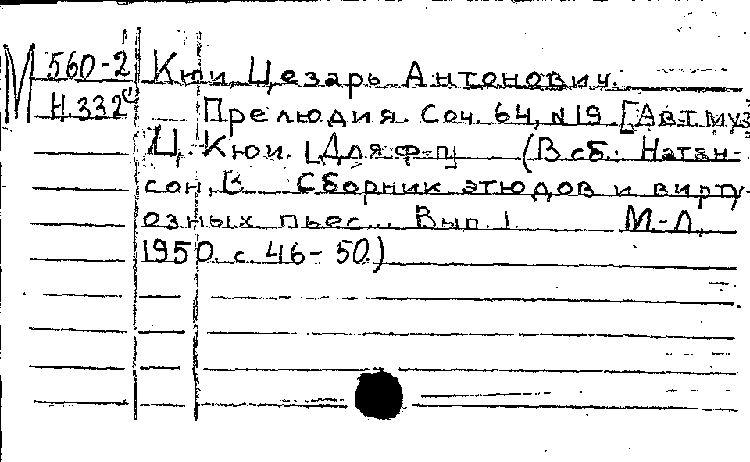 М 560-2 Кюи, Цезарь Антонович.
Н 332 Прелюдия. Соч. 64, №19. [Авт. муз.
Ц. Кюи. [Для ф-п] (В сб.: Натан-
сон, В. Сборник этюдов и вирту-
озных пьес... Вып. 1 М.-Л.,
1950. с. 46-50.)